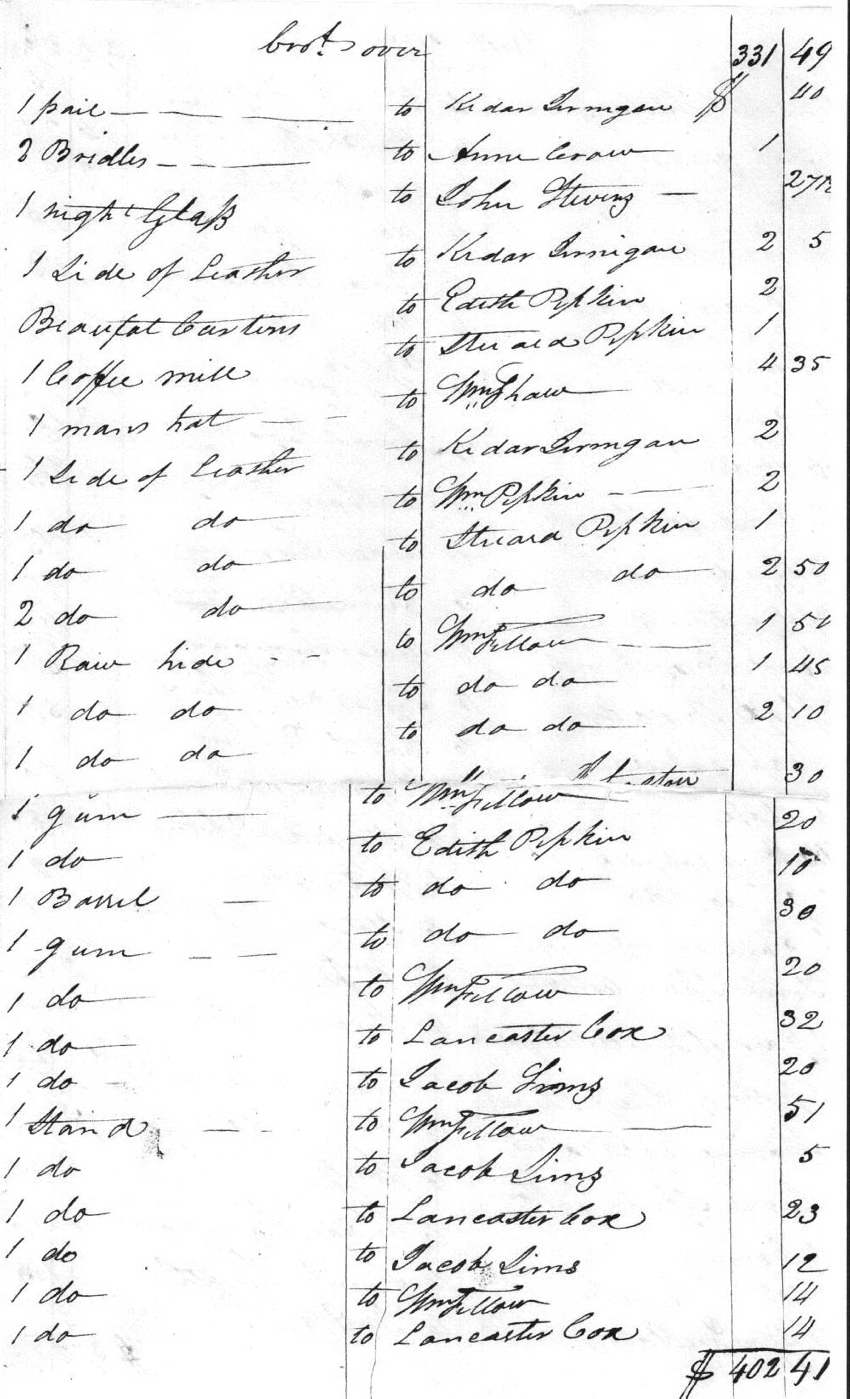 brot. over 331 49
1 pail to Kedar Jernigan $ 40
2 Bridles to Anne Crow 1
1 night Glass to John Stevens 27½
1 Side of Leather to Kedar Jernigan 2 5
Beaufat Curtins to Edith Pipkin 2
1 Coffee mill to Steuard Pipkin 1
1 mans hat to Wm Shaw 4 35
1 Side of Leather to Kedar Jernigan 2
1 do do to Wm Pipkin 2
1 do do to Steuard Pipkin 1
2 do do to do do 2 50
1 Raw hide to Wm Fellow 1 51
1 do do to do do 1 45
1 do do to do do 2 10
1 gum to Wm Fellow 30
1 do to Edith Pipkin 20
1 Barrel to do do 10
1 gum to do do 30
1 do to Wm Fellow 20
1 do to Lancaster Cox 32
1 do to Jacob Sims 20
1 Stand to Wm Fellow 51
1 do to Jacob Sims 5
1 do to Lancaster Cox 23
1 do to Jacob Sims 12
1 do to Wm Fellow 14
1 do to Lancaster Cox 14
$ 402 41